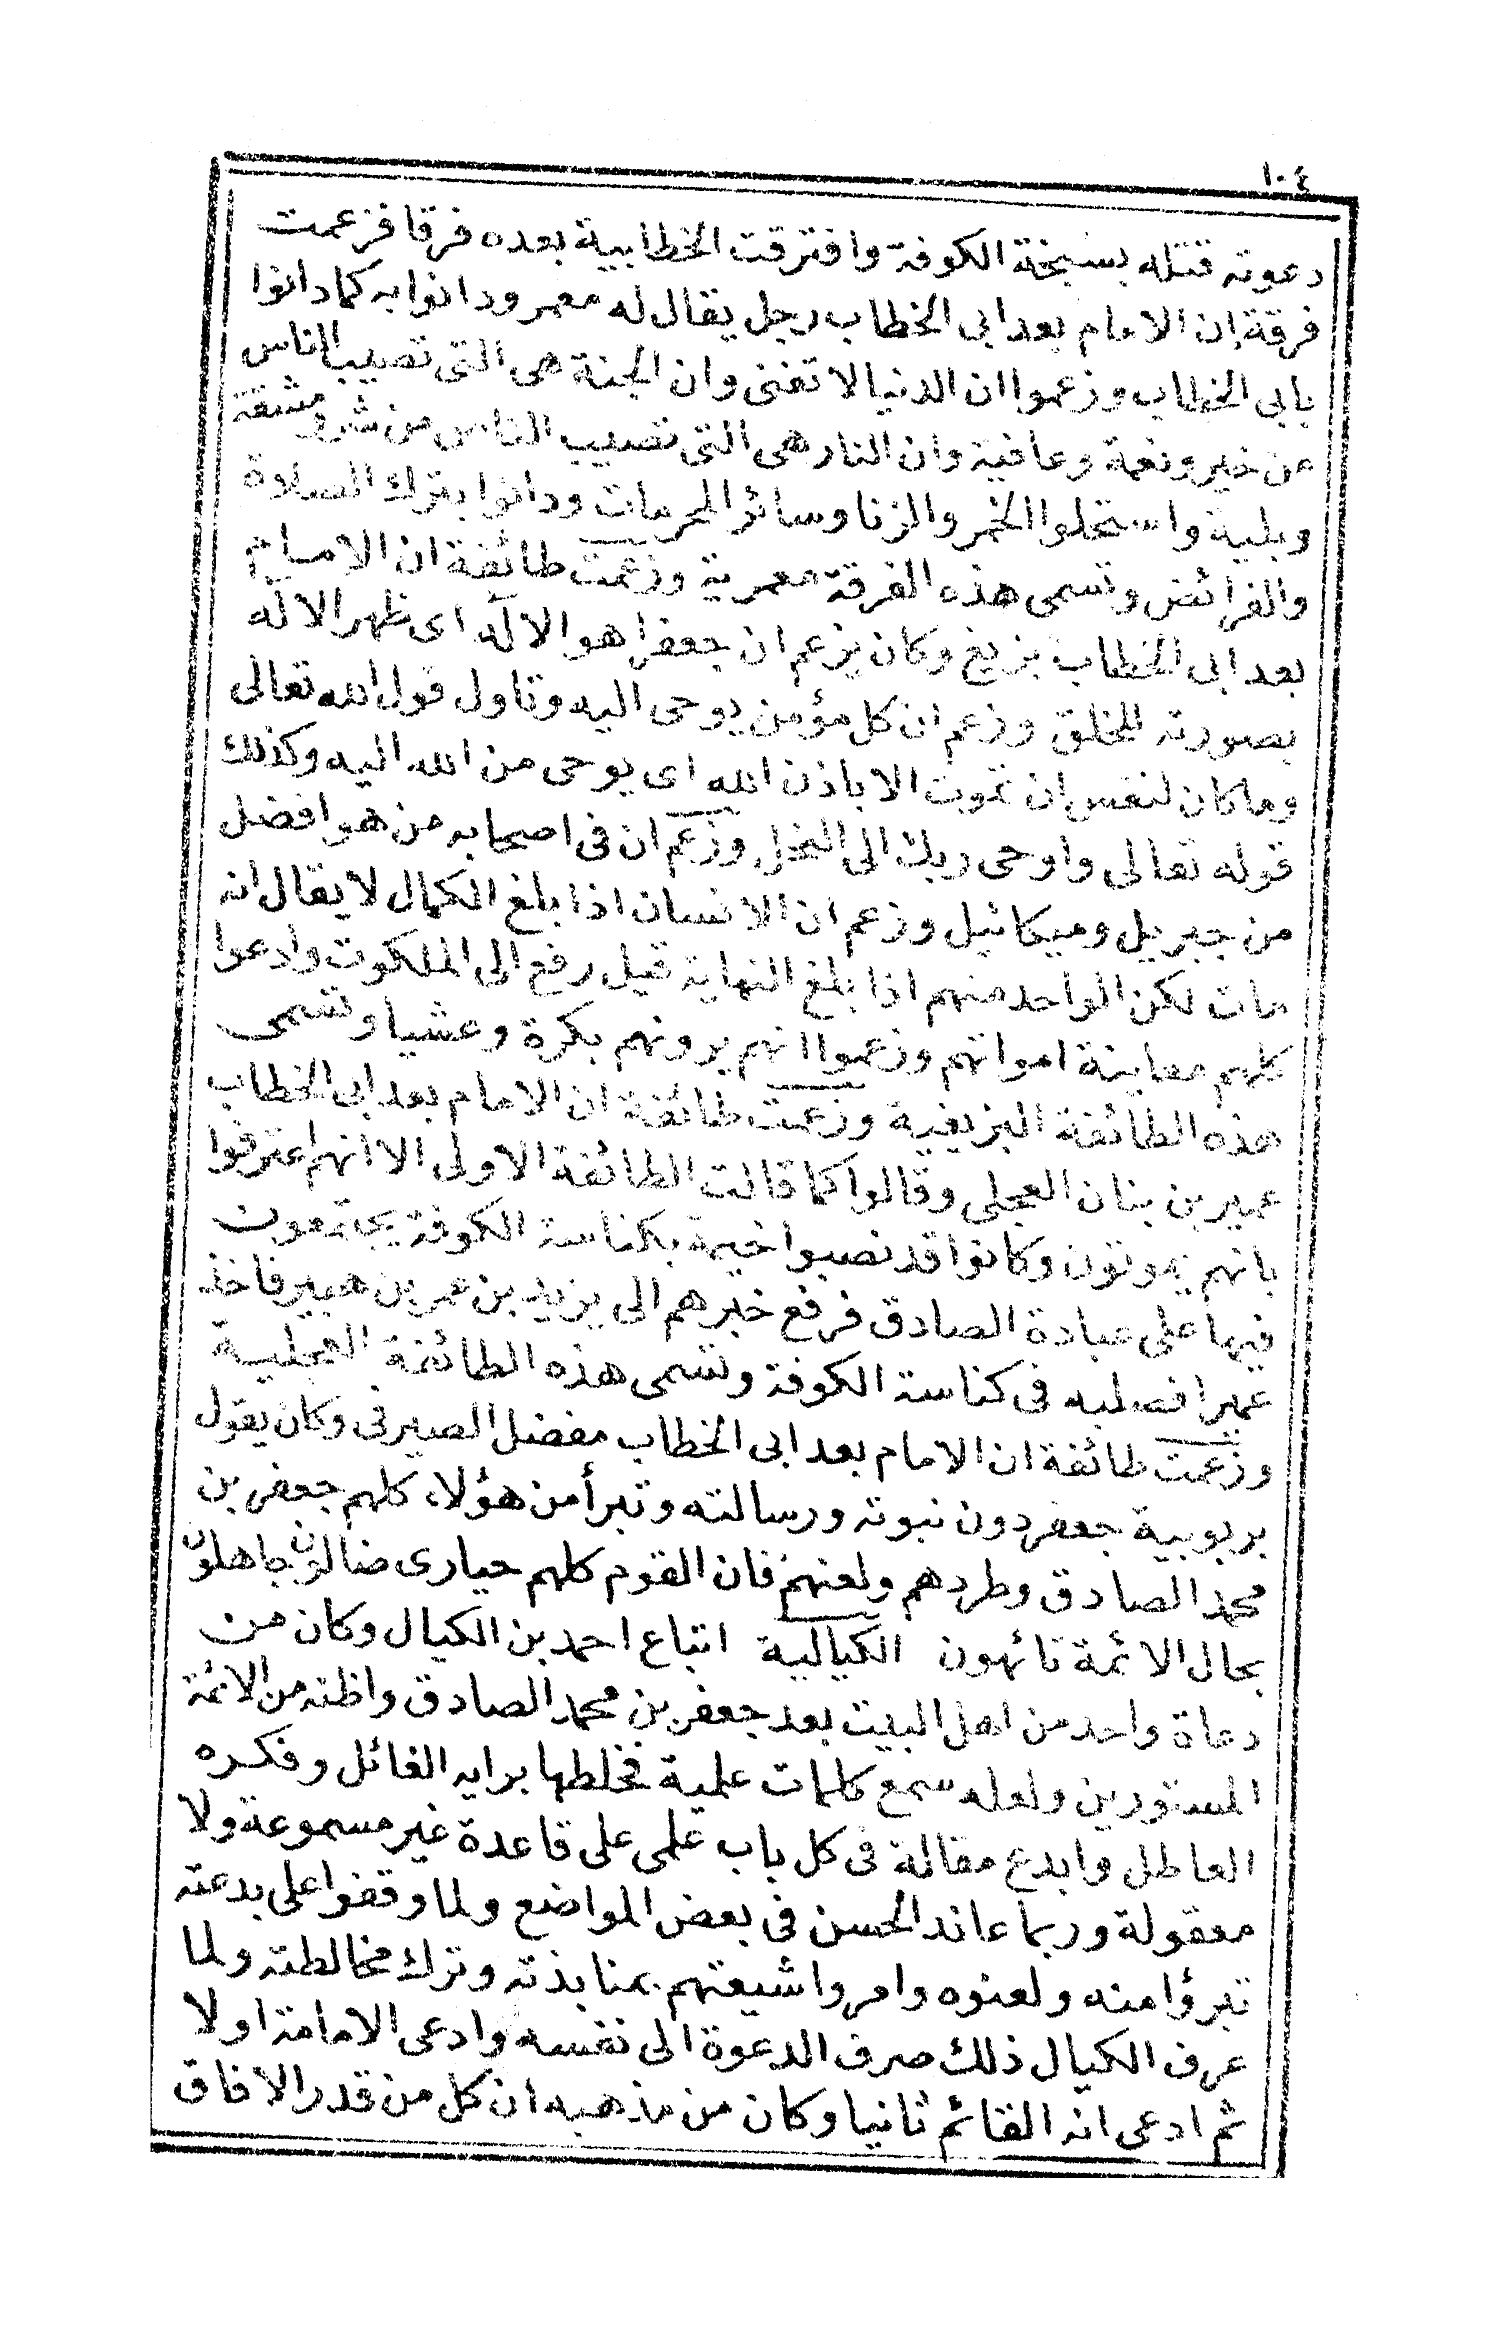 ١٠٤
دعوته قتله بسبخة الكوفة وافترقت الخطابية بعده فرقا فزعمت
فرقة إن الامام بعد ابى الخطاب رجل يقال له معمر ودانوا به كما دانوا
بابى الخطاب وزعموا ان الدنيا لا تفنى وان الجنة هى التى تصيب الناس
من خير ونعمة وعافية وان النار هى التى تصيب الناس من شر ومشقة
وبلية واستحلوا الخمر والزنا وسائر المحرمات ودانوا بترك الصلاة
والفرائض وتسمى هذه الفرقة معمرية وزعمت طائفة ان الامام
بعد ابى الخطاب بزيغ وكان يزعم ان جعفرا هو الاله اى ظهر الاله
بصورته للخلق وزعم ان كل مؤمن يوحى اليه وتاول قول الله تعالى
وما كان لنفس ان تموت الا باذن الله اى يوحى من الله اليه وكذلك
قوله تعالى واوحى ربك الى النحل وزعم ان فى اصحابه من هو افضل
من جبريل وميكائيل وزعم ان الانسان اذا بلغ الكمال لا يقال انه
مات لكن الواحد منهم اذا بلغ النهاية قيل رفع الى الملكوت وادعوا
كلهم معاينة امواتهم وزعموا انهم يرونهم بكرة وعشيا وتسمى
هذه الطائفة البزيغية وزعمت طائفة ان الامام بعد ابى الخطاب
عمير بن بنان العجلى وقالوا كما قالت الطائفة الاولى الا انهم اعترفوا
بانهم يموتون وكانوا قد نصبوا خيمة بكناسة الكوفة يجتمعون
فيها على عبادة الصادق فرفع خبرهم الى يزيد بن عمر بن هبير فاخذ
عميرا فصلبه فى كناسة الكوفة وتسمى هذه الطائفة العجلية
وزعمت طائفة ان الامام بعد ابى الخطاب مفضل الصيرفى وكان يقول
بربوبية جعفر دون نبوته ورسالته وتبرأ من هؤلاء كلهم جعفر بن
محمد الصادق وطردهم ولعنهم فان القوم كلهم حيارى ضالون جاهلون
بحال الائمة تائهون الكيالية اتباع احمد بن الكيال وكان من
دعاة واحد من اهل البيت بعد جعفر بن محمد الصادق واظنه من الائمة
المستورين ولعله سمع كلمات علمية فخلطها برايه الفائل وفكره
العاطل وابدع مقالة فى كل باب علمى على قاعدة غير مسموعة ولا
معقولة وربما عاند الحسن فى بعض المواضع ولما وقفوا على بدعته
تبرؤا منه ولعنوه وامروا شيعتهم بمنابذته وترك مخالطته ولما
عرف الكيال ذلك صرف الدعوة الى نفسه وادعى الامامة اولا
ثم ادعى انه القائم ثانيا وكان من مذهبه ان كل من قدر الافاق